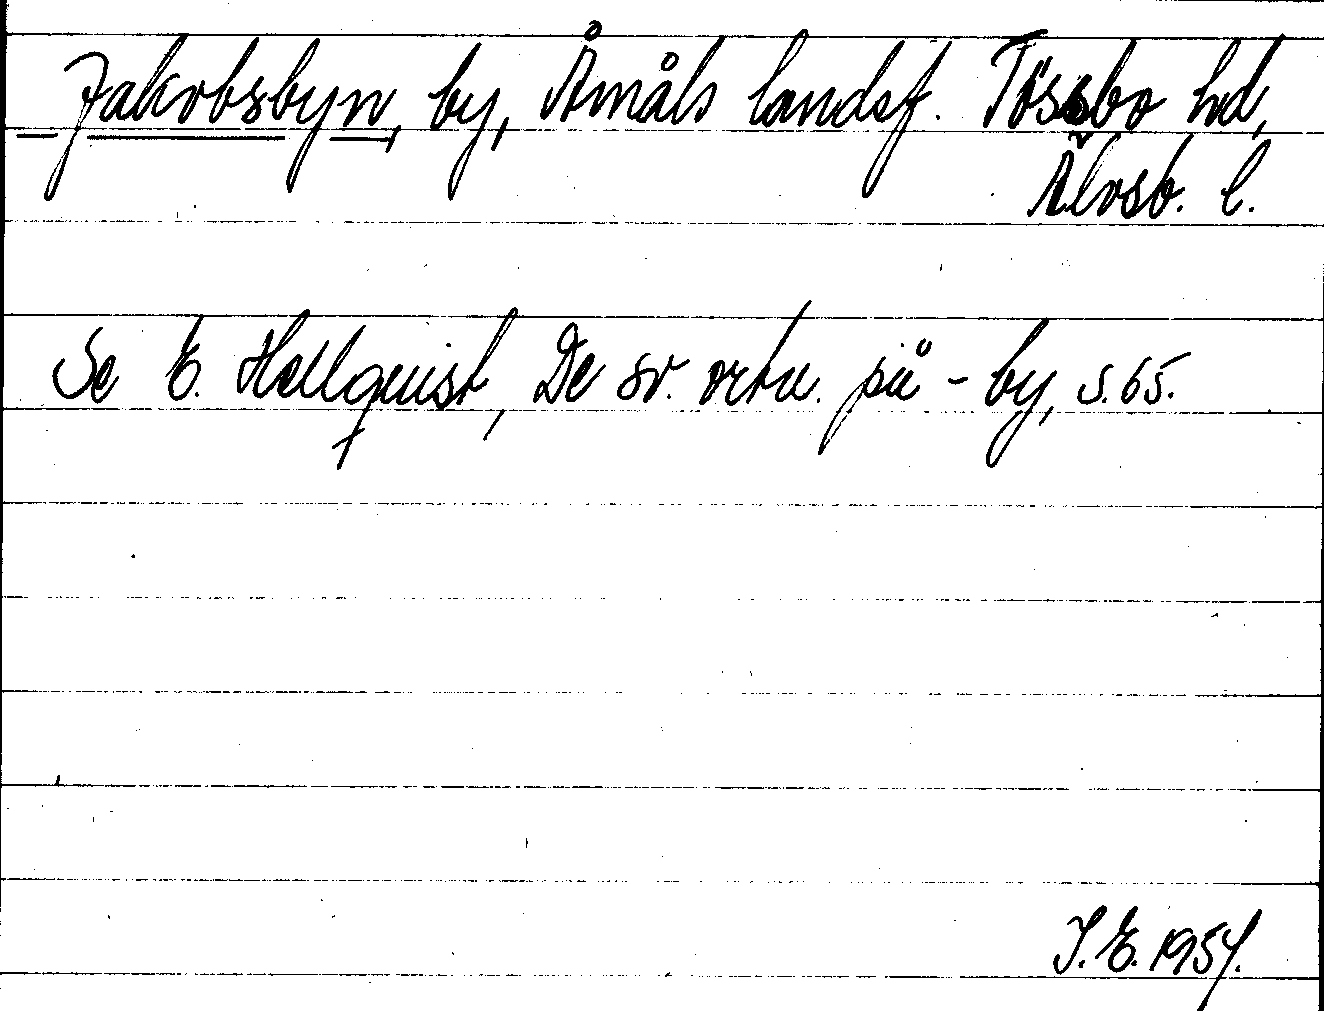 Jakobsbyn, by, Åmåls landsf. Tössbo hd,
Älvsb. l.
Se E. Hellquist, De sv. ortn. på -by, s. 65.
J. E. 1954.